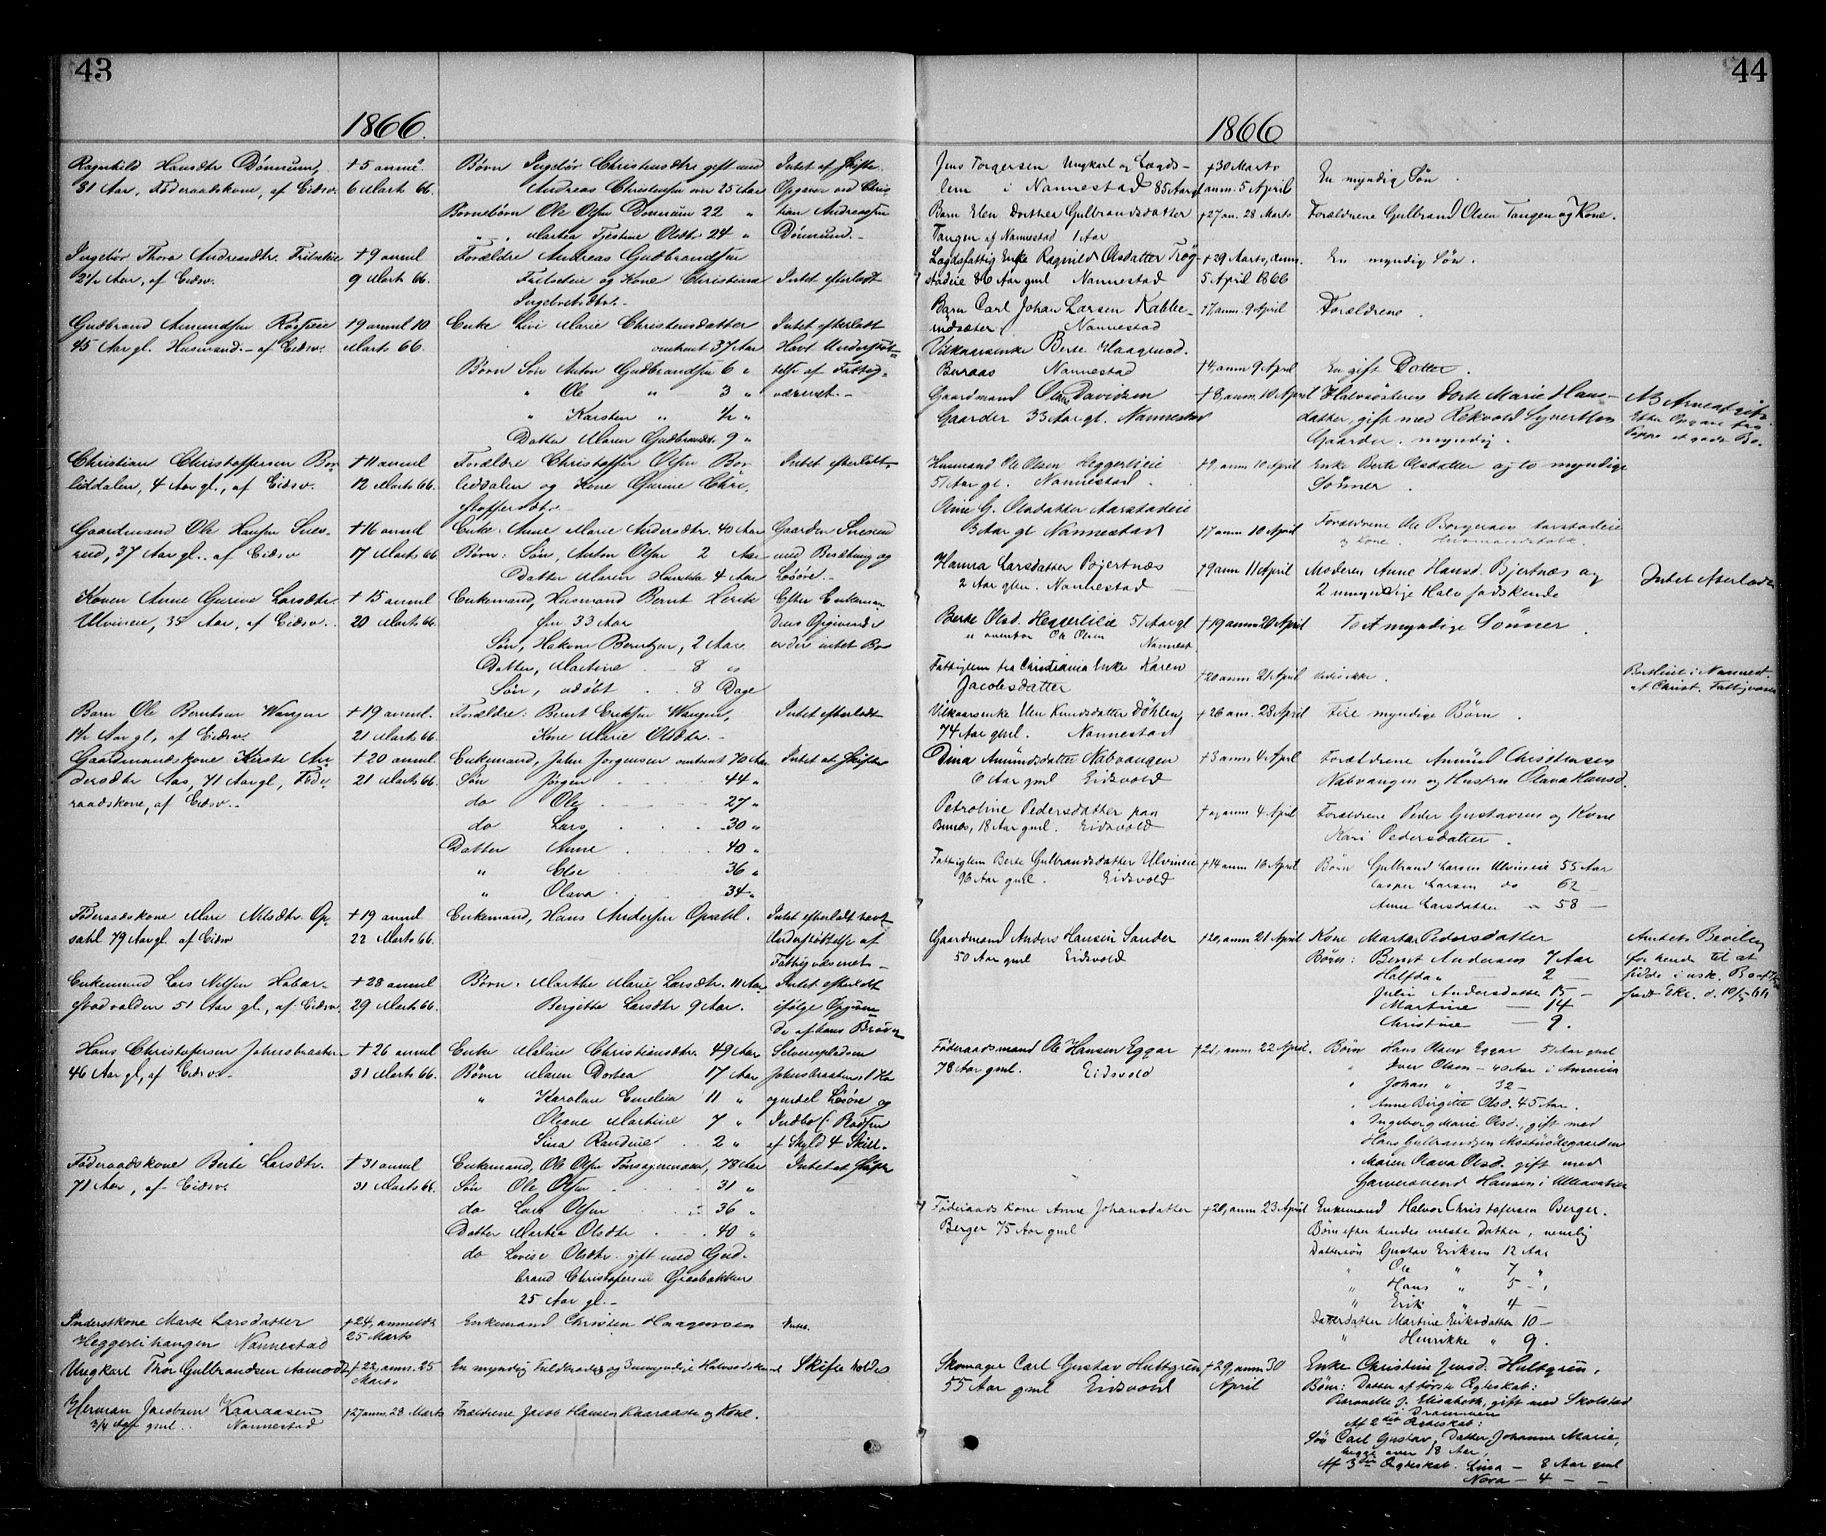 43
1866.
Ragnhild Hansdtr Dönnum,
81 Aar, Föderaadskone, af Eidsv.
† 5 anml
6 Marts 66.
Börn Ingebor Christensdtr gift med
Andreas Christensen over 25 Aar
Börnebörn Ole Olsen Dönnum 22 "
" Martea Olsdtr 24 "
Intet at Skifte
Opgaver ved Chris-
tian Andreassen
Dönnum.
Ingebor Thora Andreasdtr.
2½ Aar, af Eidsv.
† 9 anml
9 Marts 66.
Forældre Andreas Gudbrandsen
og Kone Christiane
Ingebretsdtr.
Intet efterladt
Gudbrand Amundsen
45 Aar gl. Husmand. af Eidsv.
† 9 anml 10
Marts 66.
Enke Lovi Marie Christensdatter
omtrent 37 Aar
Börn Sön Anton Gudbrandsen 6 "
" Ole " 3 "
" Karsten " ½ "
Datter Maren Gudbrandsdt. 9 "
Intet efterladt
Havt Understöt-
telse af Fattig-
væsenet.
Christian Christoffersen Bor-
liddalen, 4 Aar gl., af Eidsv.
† 11 anml
12 Marts 66.
Forældre Christoffer Olsen Bor-
liddalen og Kone Gurine Chri-
stoffersdtr.
Intet efterladt.
Gaardmand Ole Hansen Sves-
rud, 37 Aar gl. af Eidsv
† 16 anml
17 Marts 66.
Enke: Anne Marie Andersdtr. 40 Aar
Börn: Sön, Anton Olsen 2 Aar
Datter Maren 4 Aar
Gaarden
med Besætning og
Lösöre.
Konen Anne Gurine Larsdtr.
Ulvineie, 35 Aar, af Eidsv.
† 15 anml
20 Marts 66.
Enkemand, Husmand Bernt
33 Aar
Sön, Hakon Berntsen, 2 Aar
Datter, Martine 8 "
Sön, udöbt 8 Dage
Efter Enkeman-
dens Opgivende
er der intet Bo
Barn Ole Berntsen Wangen
1½ Aar gl, af Eidsv.
† 19 anml.
21 Marts 66.
Forældre: Bernt Eriksen Wangen,
Kone Marie Olsdtr.
Intet efterladt
Gaardmandskone Kirste An-
dersdtr Aas, 71 Aar gl, Föde-
raadskone, af Eidsv.
† 20 anml
21 Marts 66.
Enkemand, John Jörgensen omtrent 70 Aar
Sön Jörgen 44 "
do Ole 27 "
do Lars 30 "
Datter Anne 40 "
" Else 36 "
" Olava 34 "
Intet at Skifte
Föderaadskone Mari Nilsdtr. Op-
sahl 79 Aar gl. af Eidsv
† 19 anml
22 Marts 66.
Enkemand, Hans Andersen Opsahl.
Intet efterladt havt
Understöttelse af
Fattigvæsenet
Enkemand Lars Nilsen Habar-
stadvolden 51 Aar gl., af Eidsv.
† 28 anml
29 Marts 66.
Börn. Marthe Marie Larsdtr. 11 Aar
Bergitte Larsdtr 9 Aar.
Intet efterladt
ifölge Opgiven-
de af hans Bröder
Hans Christofersen Johnsbraaten
46 Aar gl, af Eidsv.
† 26 anml
31 Marts 66.
Enke Maline Christiansdtr. 49 Aar
Börn Maren Dortea 17 Aar
" Karoline Emelia 11 "
Oleane Martine 7 "
Sina Randine 2 "
Selveierpladsen
Johnsbraaten 1 Ko
og endel Lösöre og
Indbo
af Skyld 4 Skill.
Föderaadskone Berte Larsdtr.
71 Aar, af Eidsv.
† 31 anml
31 Marts 66.
Enkemand, Ole Olsen 78 Aar
Sön Ole Olsen 31 "
do Lars Olsen 36 "
Datter Martea Olsdtr 40 "
do Lovise Olsdtr. gift med Gud-
brand Christofersen Graabakken
25 Aar gl.
Intet at Skifte
Inderstkone Marte Larsdatter
Heggerlihaugen Nannestad
† 24, anmeldt
25 Marts
Enkemand Christen Haagensen
Intet.
Ungkarl Thor Gulbrandsen Aamodt
† 22, anm. 25
Marts
En myndig Fuldbroder og 3 umyndige Halvsödskend
Skifte holdes
Herman Jacobsen Kaaraasen
3/4 Aar gml. Nannestad
† 27 anm. 28 Marts
Forældrene Jacob Hansen Kaaraasen og Kone.
44
1866
Jens Torgersen Ungkarl og Lægds-
lem i Nannestad 85 Aar gl
† 30 Marts
anm. 5 April
En myndig Sön.
Barn Elen Dorthea Gulbrandsdatter
Tangen af Nannestad 1 Aar
† 27 an. 28 Marts
Forældrene Gulbrand Olsen Tangen og Kone.
Lægdsfattig Enke Ragnild Olsdatter Trög-
stadeie 86 Aar gml Nannestad
† 29 Marts, anm.
5 April 1866
En myndig Sön.
Barn Carl Johan Larsen Kable-
rudsæter. Nannestad
† 7, anm. 9 April
Forældrene.
Vilkaarsenke Berte Haagensd.
Buraas Nannestad
† 4, anm 9 April
En gift Datter.
Gaardmand Olaus Davidsen
Gaarder 33 Aar gl. Nannestad
† 8, anm. 10 April
Halvsösteren Dorte Marie Hans-
datter, gift med Rekvold Syvertsen
Gaarder. myndig.
NB
Efter Opgave fra
Husmand Ole Olsen Heggerlieie
51 Aar gl. Nannestad.
† 9, anm 10 April
Enke Berte Olsdatter og to myndige
Sönner.
Oline G. Olsdatter Aarstadeie
3 Aar gl Nannestad
† 7 anm 10 April
Forældrene Ole Borgersen Aarstadeie
og Kone. Husmandsfolk.
Hanna Larsdatter Bjertnæs
2 Aar glm. Nannestad
† 9 anm 11 April
Moderen Anne Hansd. Bjertnæs og
2 umyndige Halvsödskende
Intet Efterladt
Berte Olsd. Heggerlieie 51 Aar gl
Ole Olsen
Nannest
† 19 anm 20 April
To myndige Sönner.
Fattiglem fra Christiania Enke Karen
Jacobsdatter
† 20 anm 21 April
Vides ikke.
i Nannest.
af Christ. Fattigvæsen
Vilkaarsenke Elen Knudsdatter Döhlen,
74 Aar gml. Nannestad
† 26 anm. 28 April
Fire myndige Börn.
Dina Amundsdatter Nabvangen
6 Aar gml Eidsvold
† 3 anm 4 April
Forældrene Amund Christensen
Nabvangen og Hustru Olava Hansd.
Petroline Pedersdatter paa
18 Aar gml. Eidsvold
† og anm 4 April
Forældrene Peder Gustavsen og Kone
Kari Pedersdatter.
Fattiglem Berte Gulbrandsdatter Ulvineie
96 Aar gml. Eidsvold
† 14 anm 16 April
Börn Gulbrand Larsen Ulvineie 55 Aar
Casper Larsen do 62 —
Anne Larsdatter " 58 —
Gaardmand Anders Hansen Sander
50 Aar gml Eidsvold
† 20, anm 21 April
Kone Martea Pedersdatter
Börn: Bernt Andersen 7 Aar
Halfdan — 2 —
Julie Andersdatter 15 —
Martine — 14
Christine — 9.
Amtets Bevilling
for hende til at
sidde i usk. Bo
d. 10/5 66
Föderaadsmand Ole Hansen Eggar
78 Aar gml. Eidsvold
† 21, anm 22 April.
Börn Hans Olsen Eggar 51 Aar gml
" Iver Olsen — 40 Aar i Amerika
" Johan " 32 —
" Anne Birgitte Olsd. 45 Aar.
" Ingeborg Marie Olsd., gift med
Hans Gulbrandsen
" Maren Olava Olsd. gift med
Garversvend Hansen i
Föderaadskone Anne Johansdatter
Berger 75 Aar gml
† 20, anm 23 April
Enkemand Halvor Christofersen Berger.
Börn efter hendes eneste Datter, nemlig
Dattersön Gustav Eriksen 12 Aar
" Ole " 7 "
" Hans " 5 — "
" Erik " 4 —
Datterdatter Martine Eriksdatter 10 —
" Henrikke " 9.
Skomager Carl Gustav Hultgren
55 Aar gml Eidsvold
† 29, anm 30
April
Enke Christine Jensd. Hultgren,
Börn: Datter af förste Ægteskab:
Petronelle J. Elisabeth, gift med Skolstad
i Drammen
Af 2det Ægteskab:
Sön Carl Gustav, Datter Johanne Marie,
begge over 18 Aar.
Af 3die Ægteskab. Lina — 8 Aar gml
Nora — 4 — —